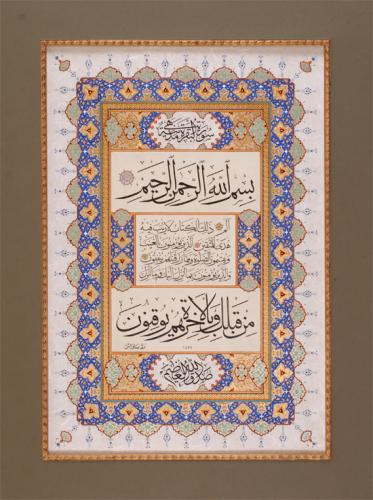 سورة البقرة مدنية
بسم الله الرحمن الرحيم
الم ذلك الكتاب لا ريب فيه
هدى للمتقين الذين يؤمنون بالغيب
ويقيمون الصلوة ومما رزقناهم ينفقون
والذين يؤمنون بما انزل اليك وما انزل
من قبلك وبالاخرة هم يوقنون
صدق الله العظيم